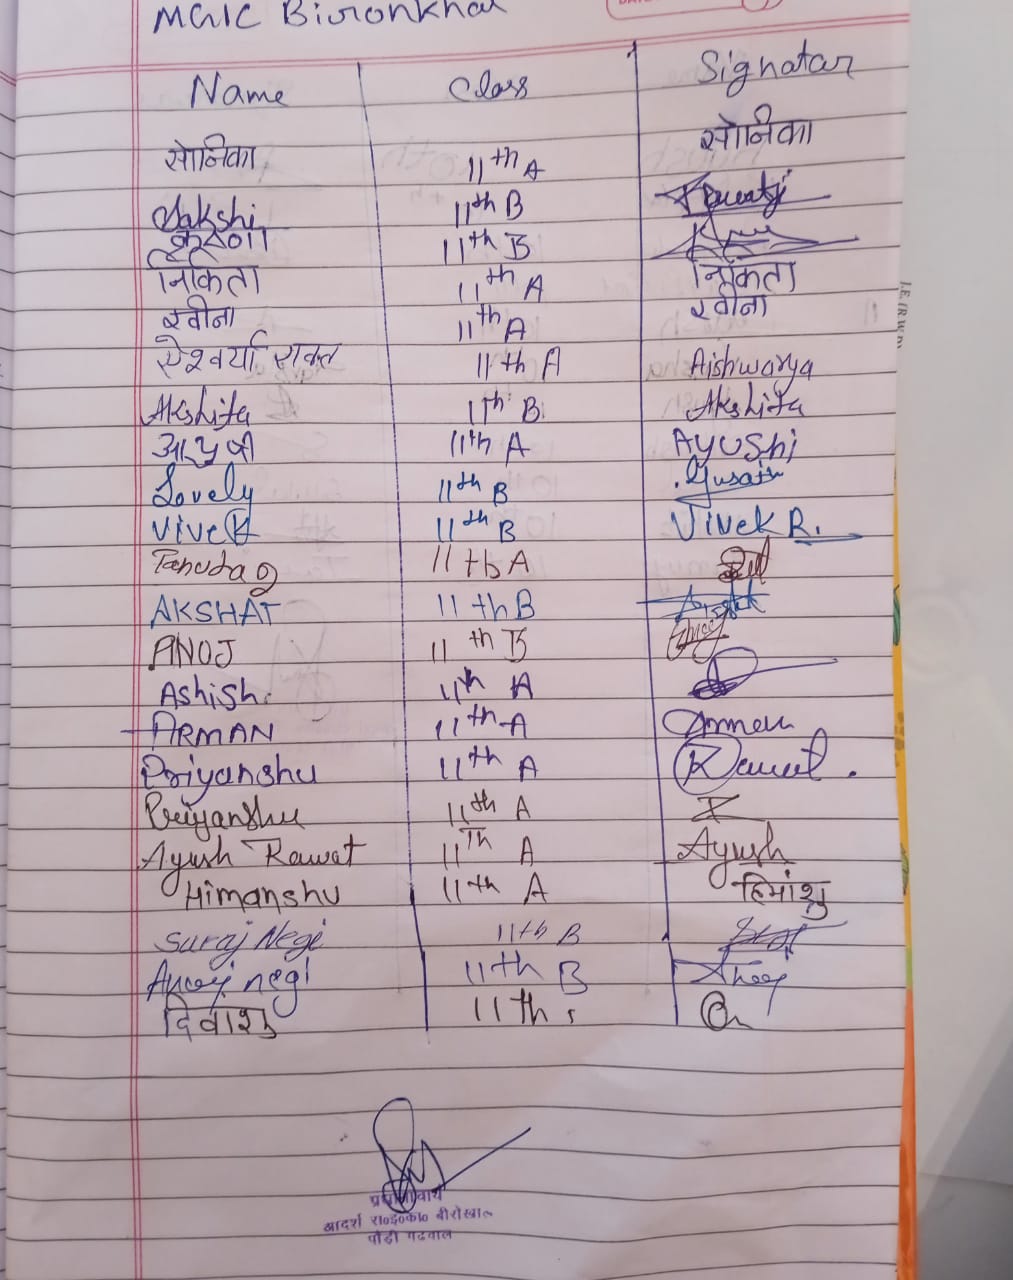 MGIC Bironkhal
Name Class Signatar
सोनिका 11th A सोनिका
Sakshi 11th B
करूणा 11th B
निकिता 11th A निकिता
रवीना 11th A रवीना
ऐश्वर्या रावत 11th A Aishwarya
Akshita 11th B Akshita
आयुषी 11th A AYUShi
Lovely 11th B Gusain
Vivek 11th B Vivek R.
Tanuja 11th A
AKSHAT 11th B
ANOJ 11th B
Ashish 11th A
ARMAN 11th A
Priyanshu 11th A Rawat.
Priyanshu 11th A
Ayush Rawat 11Th A Ayush
Himanshu 11th A हिमांशु
Suraj Negi 11th B
Anooj negi 11th B Anooj
दिवांशु 11th
प्रधानाचार्य
आदर्श रा०इ०का० बीरोंखाल
पौड़ी गढ़वाल